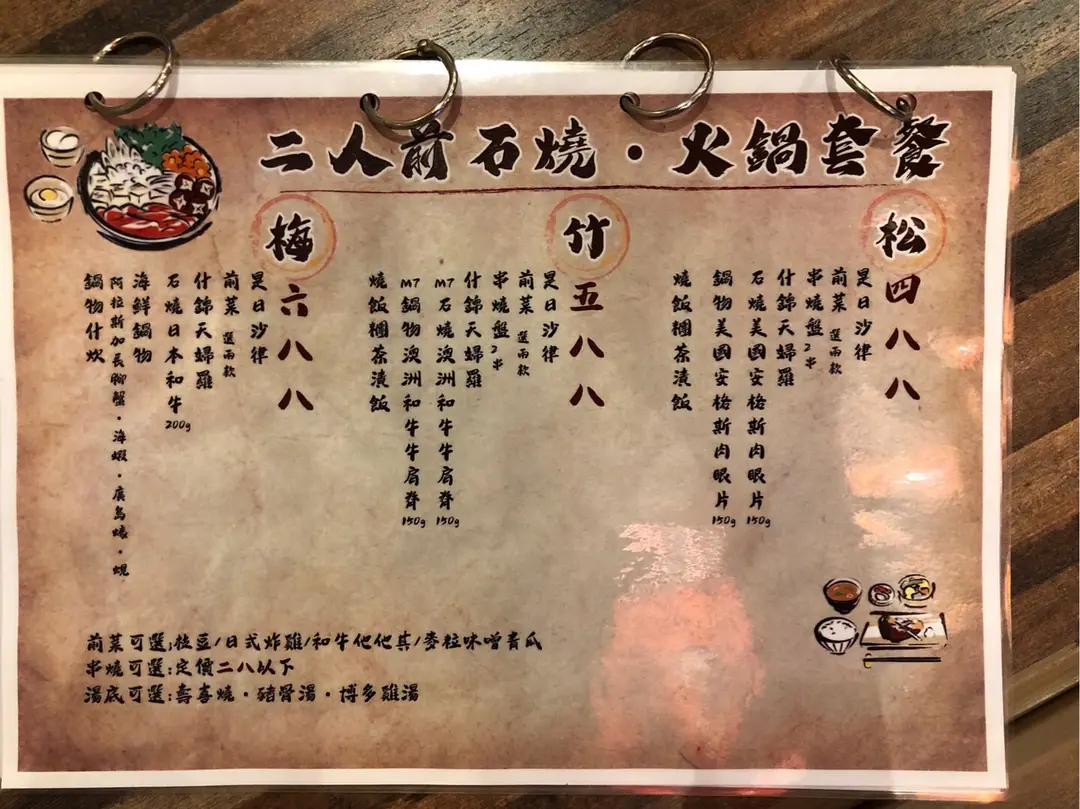 二人前石燒·火鍋套餐
松 四八八
是日沙律
前菜 選兩款
串燒盤 2串
什錦天婦羅
石燒美國安格斯肉眼片 150g
鍋物美國安格斯肉眼片 150g
燒飯糰茶漬飯
竹 五八八
是日沙律
前菜 選兩款
串燒盤 2串
什錦天婦羅
M7石燒澳洲和牛牛肩脊 150g
M7鍋物澳洲和牛牛肩脊 150g
燒飯糰茶漬飯
梅 六八八
是日沙律
前菜 選兩款
什錦天婦羅
石燒日本和牛 200g
海鮮鍋物
阿拉斯加長腳蟹·海蝦·廣島蠔·蜆
鍋物什炊
前菜可選:枝豆/日式炸雞/和牛他他其/麥粒味噌青瓜
串燒可選:定價二八以下
湯底可選:壽喜燒·豬骨湯·博多雞湯